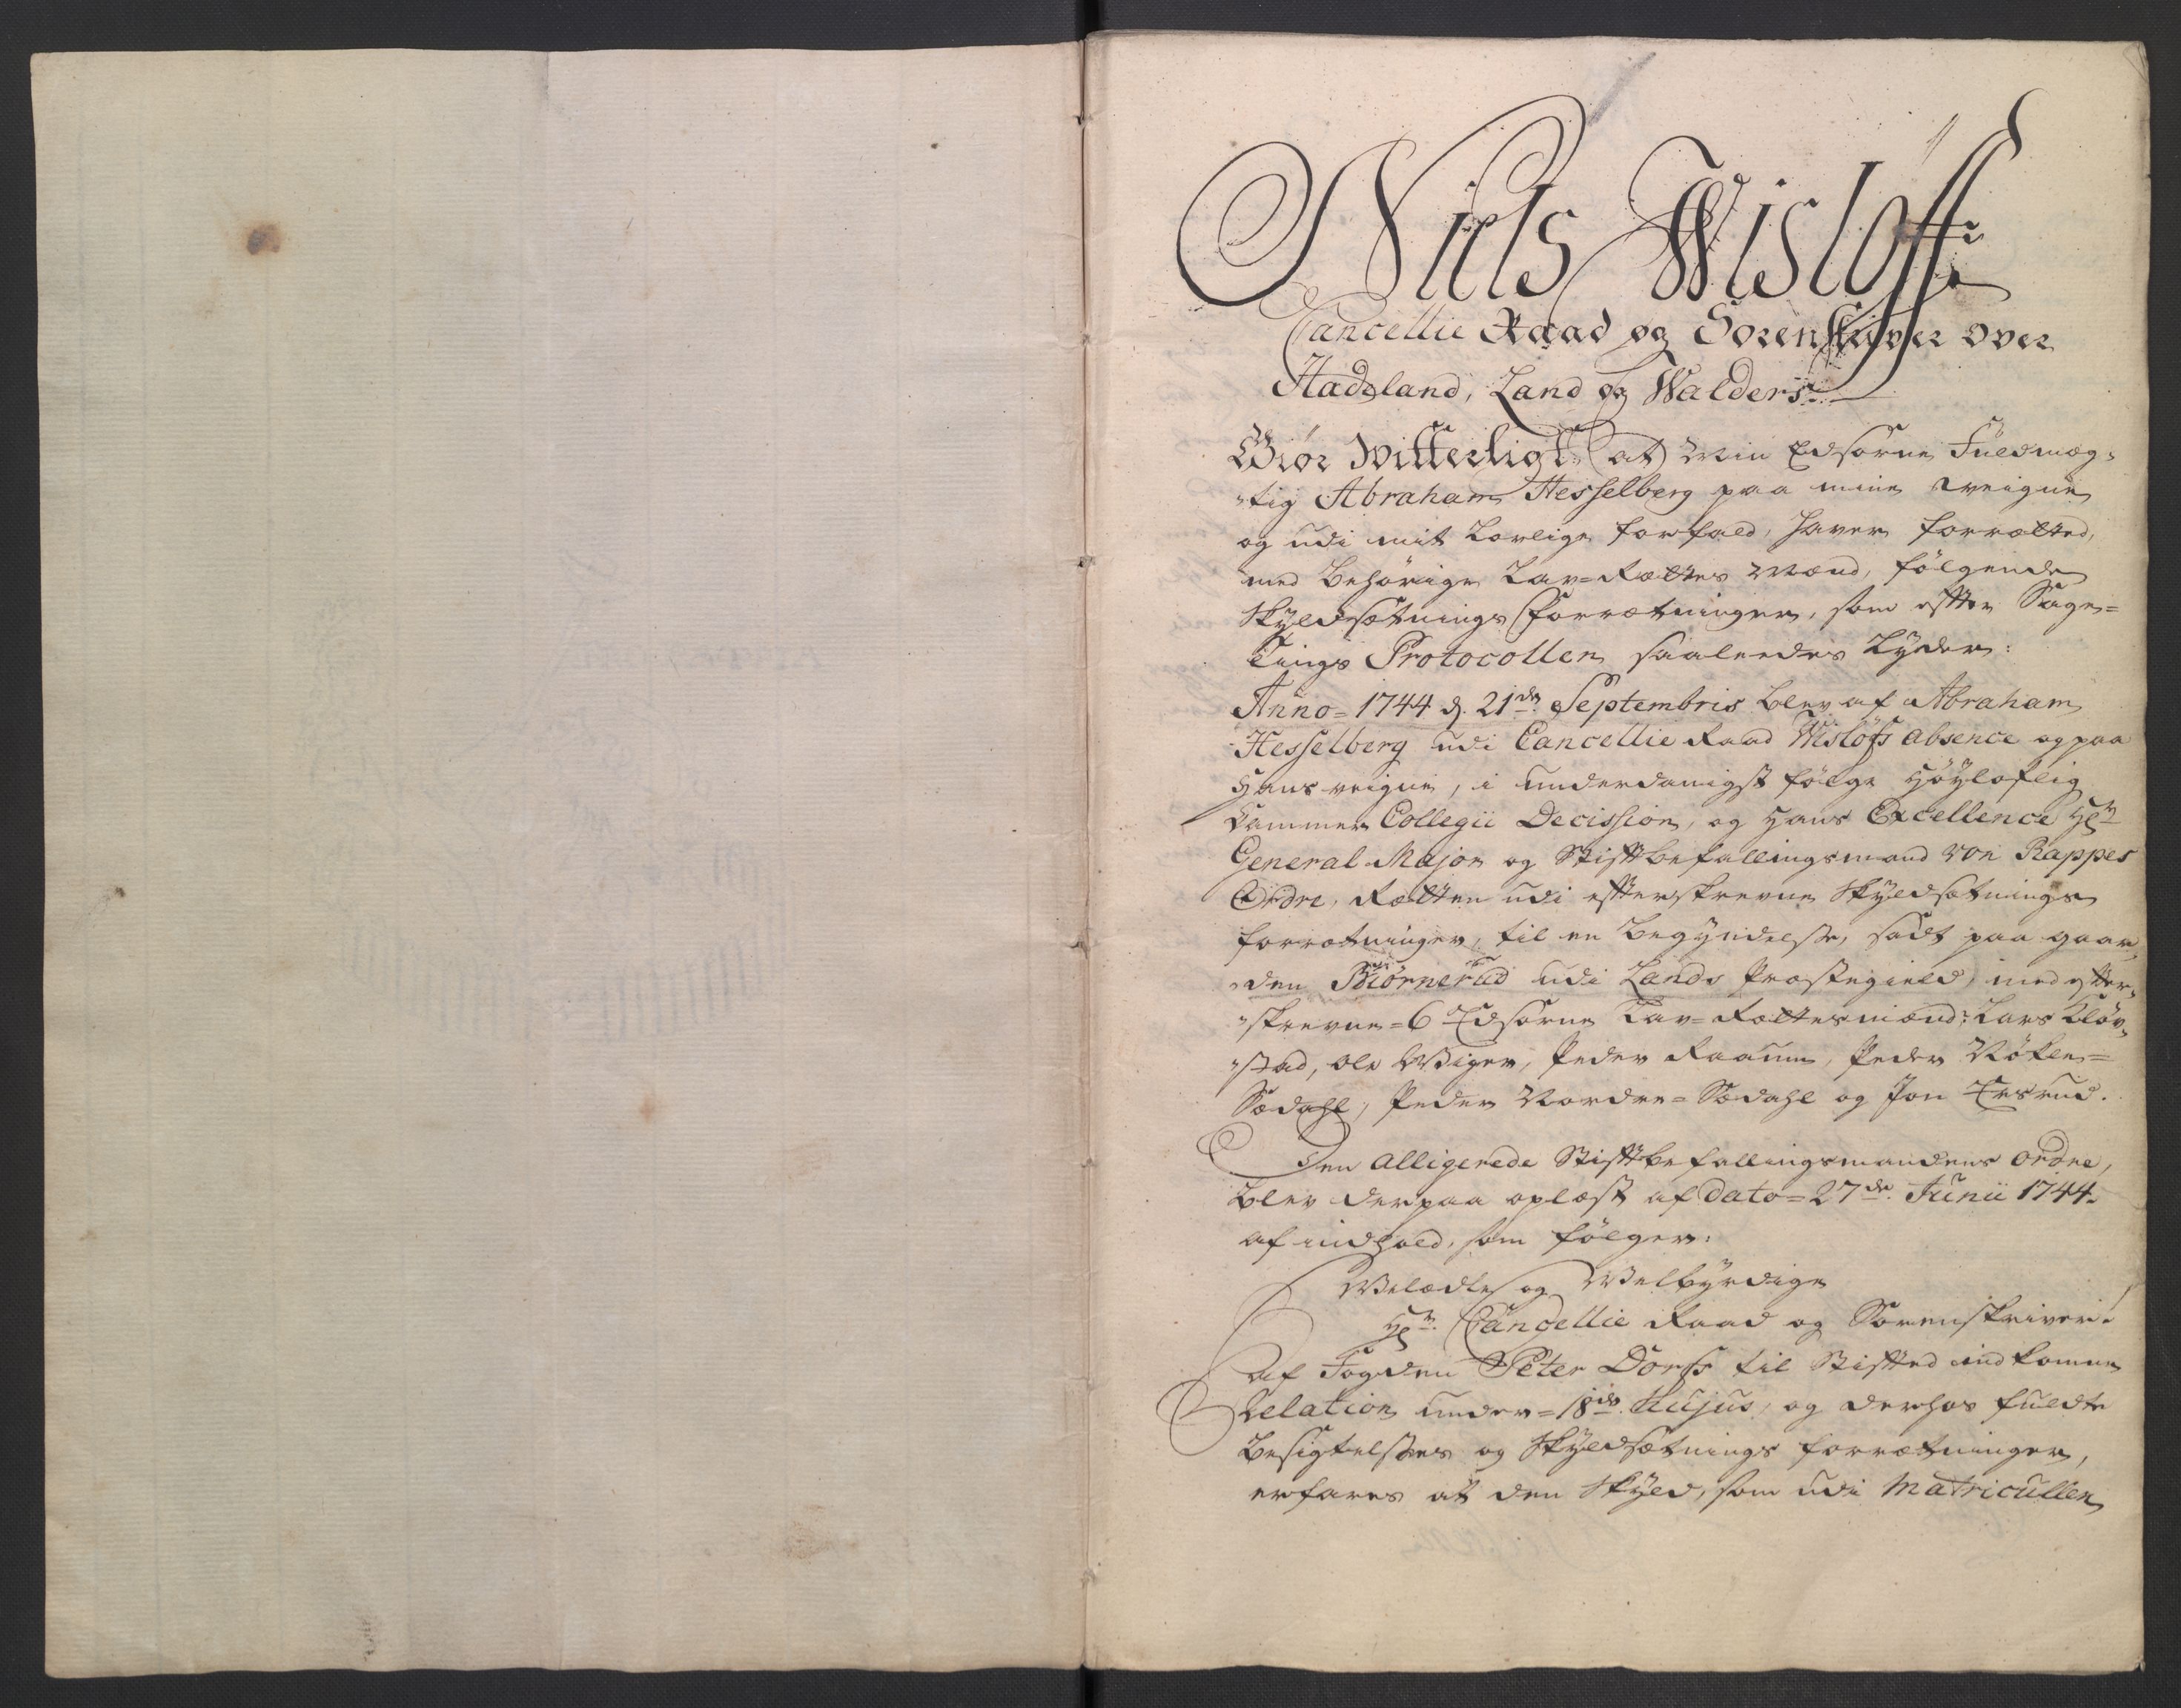 Niels Wisløff
Cancellie Raad og Sorenskriver over
Hadeland, Land og Walders
Giør Witterligt, at Min Edsorne Fuldmæg-
tig Abraham Hesselberg paa mine Weigne
og udi mit Lovlige forfald, haver forrætted,
med Behørige Lav-Rættes Mænd, følgende
Skyldsætnings Forrætninger, som efter Sage-
tings Protocollen saaleedes Lyder:
Anno 1744 d. 21de Septembris blev af Abraham
Hesselberg udi Cancellie Raad Wisløfs absence og paa
Hans veigne, i underdanigst følge Høyloflig
Cammer Collegii Decission, og Hans Excellence Hr
General Major og Stiftbefallingsmand von Rappes
Ordre, Rætten udi efterskrevne Skyldsætnings
forrætninger, til en Begyndelse, sadt paa gaar-
den Biørnerud udi Lands Præstegield, med efter-
skrevne 6 Edsorne Lav-Rættesmænd: Lars Kløv-
stad, Ole Wiger, Peder Raaum, Peder
Sødahl, Peder Nordre-Sødahl og Jon
Den alligerede Stiftbefallingsmandens ordre,
blev derpaa oplæst af dato 27de Junii 1744.
af indhold, som følger:
Welædle og Welbyrdige
Hr. Cancellie Raad og Sorenskriver!
Af Fogden Peter Dorff til Stifted indkomne
Relation under 18de Hujus, og derhos fuldte
Besigtelses og Skyldsætnings forrætninger,
erfares at den Skyld, som udi Matricullen